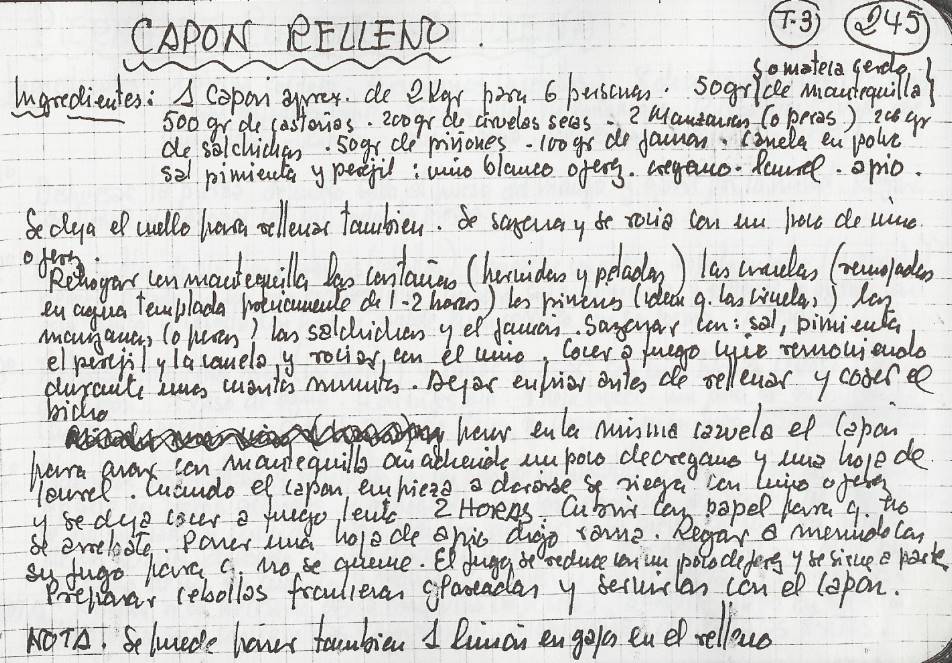 CAPON RELLENO. T.3 245
Ingredientes: 1 Capon aprox. de 2 Kgr para 6 personas. 50gr {o manteca cerdo de mantequilla}
500 gr de castañas - 200 gr de ciruelas secas - 2 Manzanas (o peras) 200 gr
de salchichas. 50gr de piñones - 100 gr de jamon. Canela en polvo
sal pimienta y perejil: vino blanco o jerez. oregano. laurel. apio.
Se deja el cuello para rellenar tambien. Se sazona y se rocia con un poco de vino
o jerez.
Rehogar con mantequilla las castañas (hervidas y peladas) las ciruelas (remojadas
en agua templada previamente de 1-2 horas) los piñones (idem q. las ciruelas) las
manzanas (o peras) las salchichas y el jamón. Sazonar con: sal, pimienta,
el perejil y la canela y rociar con el vino. Cocer a fuego vivo removiendo
durante unos cuantos minutos. Dejar enfriar antes de rellenar y coser el
bicho
poner en la misma cazuela el capon
para asar con mantequilla añadiendo un poco de oregano y una hoja de
laurel. Cuando el capon empieza a dorarse se riega con vino o jerez
y se deja cocer a fuego lento 2 HORAS. Cubrir con papel para q. no
se arrebate. Poner una hoja de apio digo rama. Regar a menudo con
su jugo para q. no se queme. El jugo se reduce con un poco de jerez y se sirve a parte
Preparar cebollas francesas glaseadas y servirlas con el capon.
NOTA. Se puede poner tambien 1 limón en gajos en el relleno